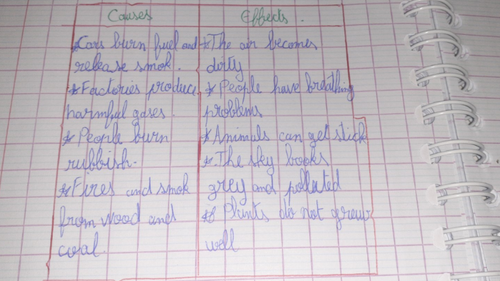 Causes
Effects
*Cars burn fuel and
release smok.
*Factories produce
harmful gases.
*People burn
rubbish.
*Fires and smok
from wood and
coal
*The air becomes
dirty
*People have breathing
problems
*Animals can get sick
*The sky looks
grey and polluted
* Plants do not grow
well